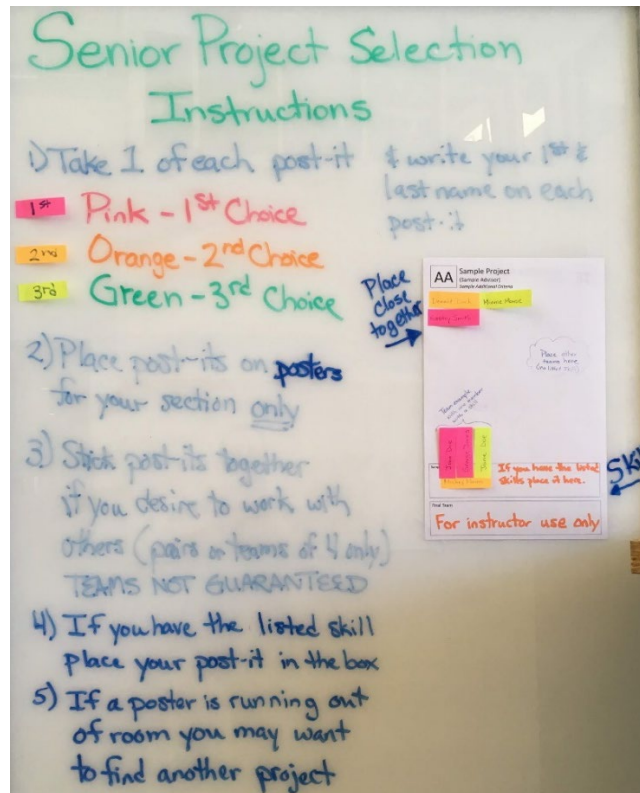 Senior Project Selection
Instructions
1) Take 1 of each post-it
& write your 1st &
last name on each
post-it
1st Pink - 1st Choice
2nd Orange - 2nd Choice
3rd Green - 3rd Choice
2) Place post-its on posters
for your section only
3) Stick post-its together
if you desire to work with
others (pairs or teams of 4 only)
TEAMS NOT GUARANTEED
4) If you have the listed skill
place your post-it in the box
5) If a poster is running out
of room you may want
to find another project
Place
close
together
AA Sample Project
(Sample Advisor)
Sample Additional Criteria
Minnie Mouse
Place other
names here
If you have the listed
skills place it here.
For instructor use only